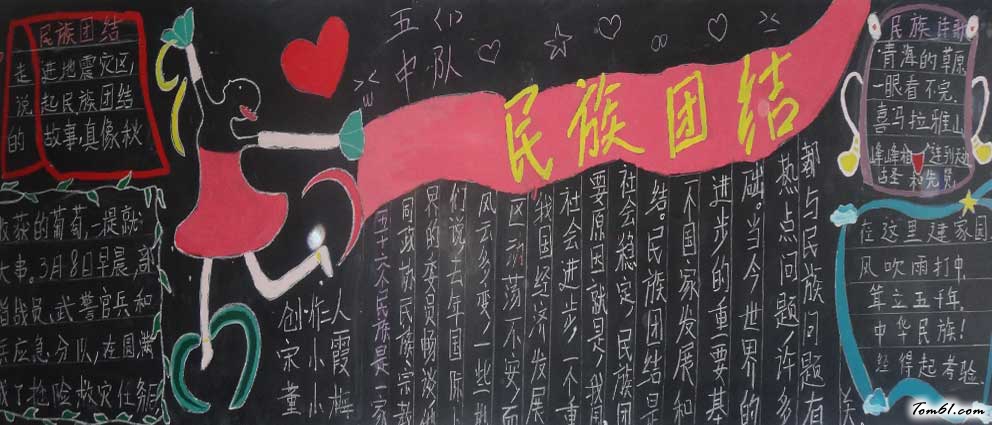 民族团结
走进地震灾区,
说起民族团结
的故事,真像秋
收获的葡萄,一提就
大串。3月8日早晨,部
消战员,武警官兵和
兵应急分队,在圆满
成了抢险救灾任务后
五〈1〉
中队
民族团结
创作人
宋小霞
董小梅
五十六个民族是一家
同政协民族宗教
界的委员畅谈
们说,去年国际
风云多变,一些
区动荡不安,而
我国经济发展
社会进步一个重
要原因就是,我国
社会稳定,民族团
结。民族团结是
一个国家发展和
进步的重要基
础。当今世界的
热点问题,许多
都与民族问题有关
民族诗歌
青海的草原
一眼看不完,
喜马拉雅山
峰峰相连到天边
古圣和先贤
在这里建家园
风吹雨打中,
耸立五千年,
中华民族!
经得起考验
Tom61.com